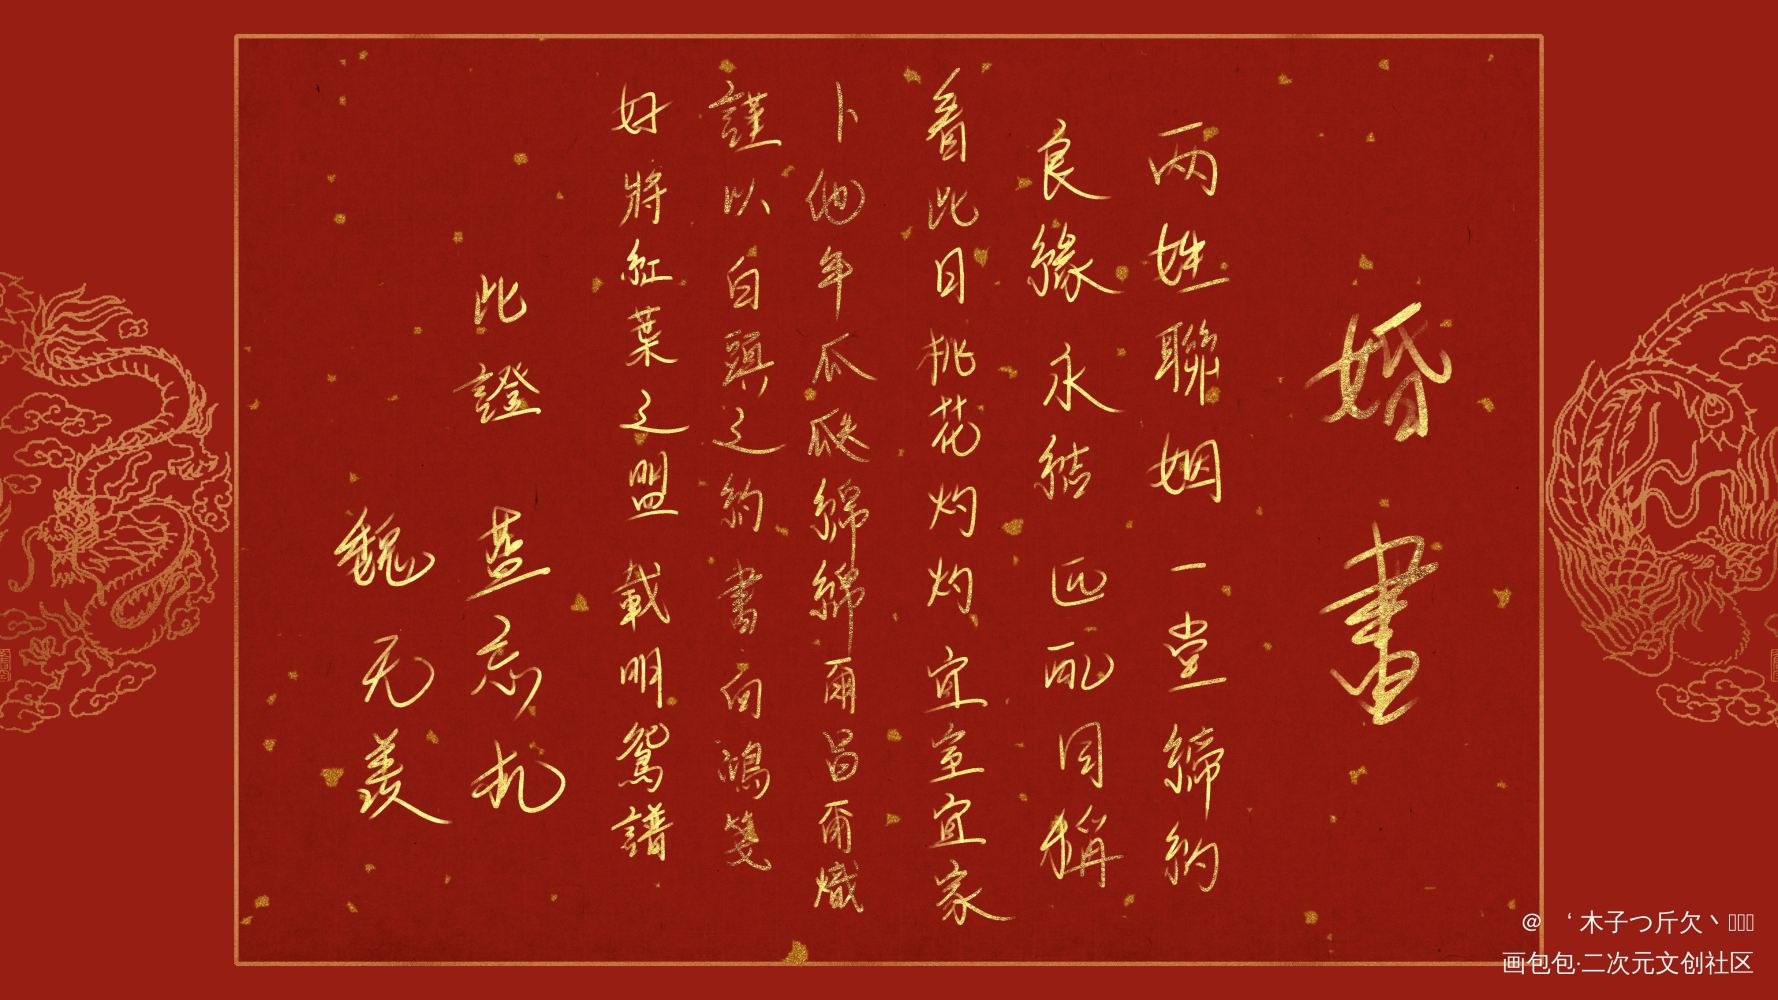 婚書
两姓聯姻 一堂締約
良緣永結 匹配同稱
看此日桃花灼灼 宜室宜家
卜他年瓜瓞綿綿 爾昌爾熾
謹以白頭之約 書向鴻箋
好將紅葉之盟 載明鴛譜
此證 蓝忘机
魏无羡
@ ‘ 木子つ斤欠丶
画包包·二次元文创社区